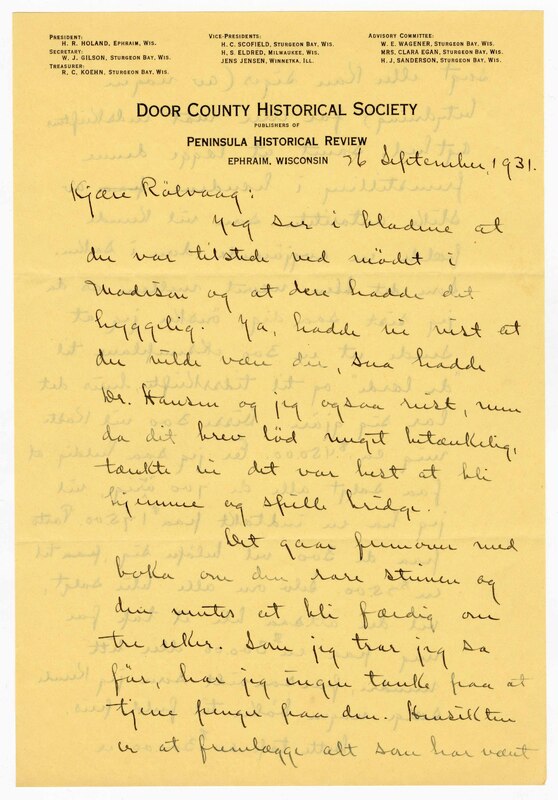 PRESIDENT:
H. R. HOLAND, EPHRAIM, WIS.
SECRETARY:
W. J. GILSON, STURGEON BAY, WIS.
TREASURER:
R. C. KOEHN, STURGEON BAY, WIS.
VICE-PRESIDENTS:
H. C. SCOFIELD, STURGEON BAY, WIS.
H. S. ELDRED, MILWAUKEE, WIS.
JENS JENSEN, WINNETKA, ILL.
ADVISORY COMMITTEE:
W. E. WAGENER, STURGEON BAY, WIS.
MRS. CLARA EGAN, STURGEON BAY, WIS.
H. J. SANDERSON, STURGEON BAY, WIS.
DOOR COUNTY HISTORICAL SOCIETY
PUBLISHERS OF
PENINSULA HISTORICAL REVIEW
EPHRAIM, WISCONSIN 26 September, 1931.
Kjære Rölvaag:
Jeg ser i bladene at
du var tilstede ved mödet i
Madison og at dere hadde det
hyggelig. Ja, hadde vi vist at
du vilde være der, saa hadde
Dr. Hansen og jeg ogsaa reist, men
da dit brev löd meget betænkelig,
tænkte vi det var best at bli
hjemme og spille bridge.
Det gaar fremover med
boka om den rare stenen og
den venter at bli færdig om
tre uker. Som jeg tror jeg sa
för, har jeg ingen tanke paa at
tjene penger paa den. Hensikten
er at fremlægge alt som har været